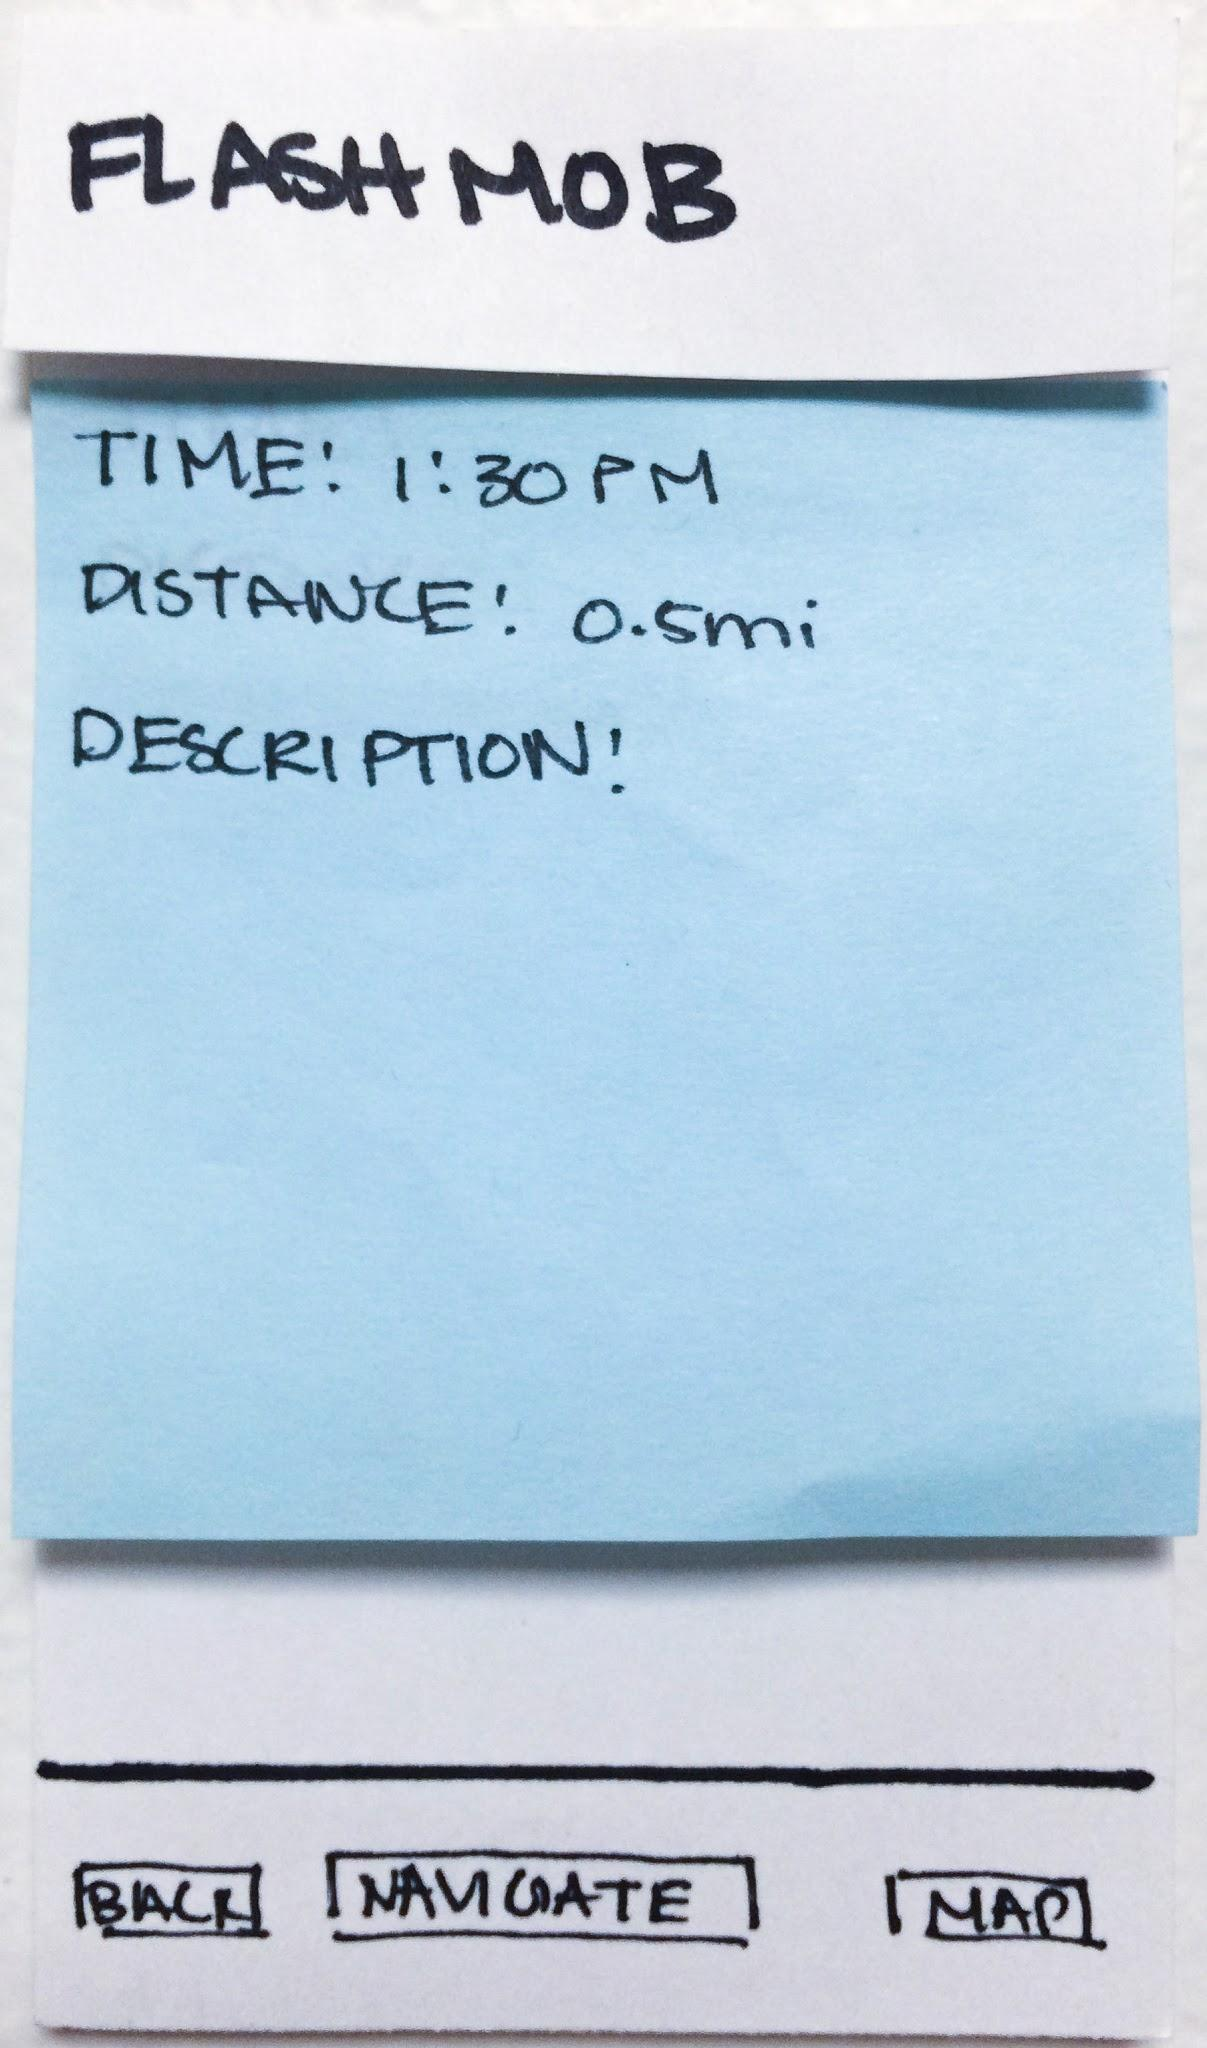 FLASH MOB
TIME: 1:30 PM
DISTANCE: 0.5mi
DESCRIPTION:
BACK NAVIGATE MAP